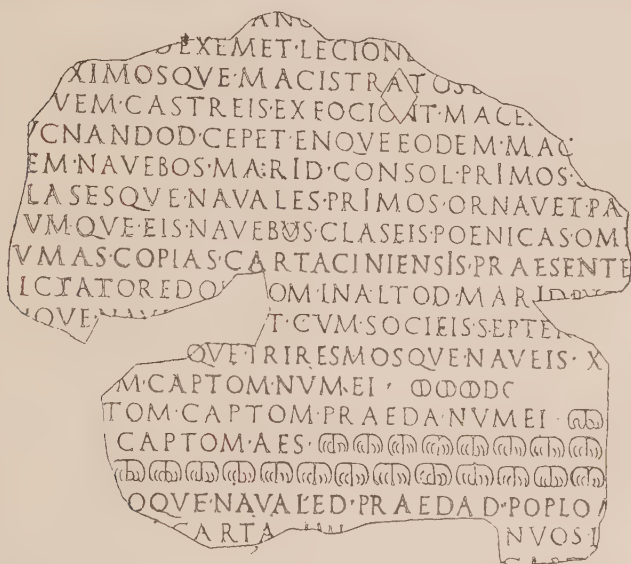 ANO
D·EXEMET·LECIONE
XIMOSQVE·MACISTRATOS
VEM·CASTREIS·EXFOCIONT·MACEL
VCNANDOD·CEPET·ENQVEEODEM·MAC
EM·NAVEBOS·MARID·CONSOL·PRIMOS·
LASESQVE·NAVALES·PRIMOS·ORNAVET·PA
VMQVE·EIS·NAVEBOS·CLASEIS·POENICAS·OM
VMAS·COPIAS·CARTACINIENSIS·PRAESENTE
ICTATORED·OL OM·INALTOD·MARID·
IQVE·NAV T·CVM·SOCIEIS·SEPTE
QVE·TRIRESMOSQVE·NAVEIS· X
M·CAPTOM·NVMEI · ↀↀↀDC
TOM·CAPTOM·PRAEDA·NVMEI · ↈ
CAPTOM·AES · ↈↈↈↈↈↈↈↈ
ↈↈↈↈↈↈↈↈↈↈↈↈↈↈ
OQVE·NAVALED·PRAEDAD·POPLO
CARTA NVOS·